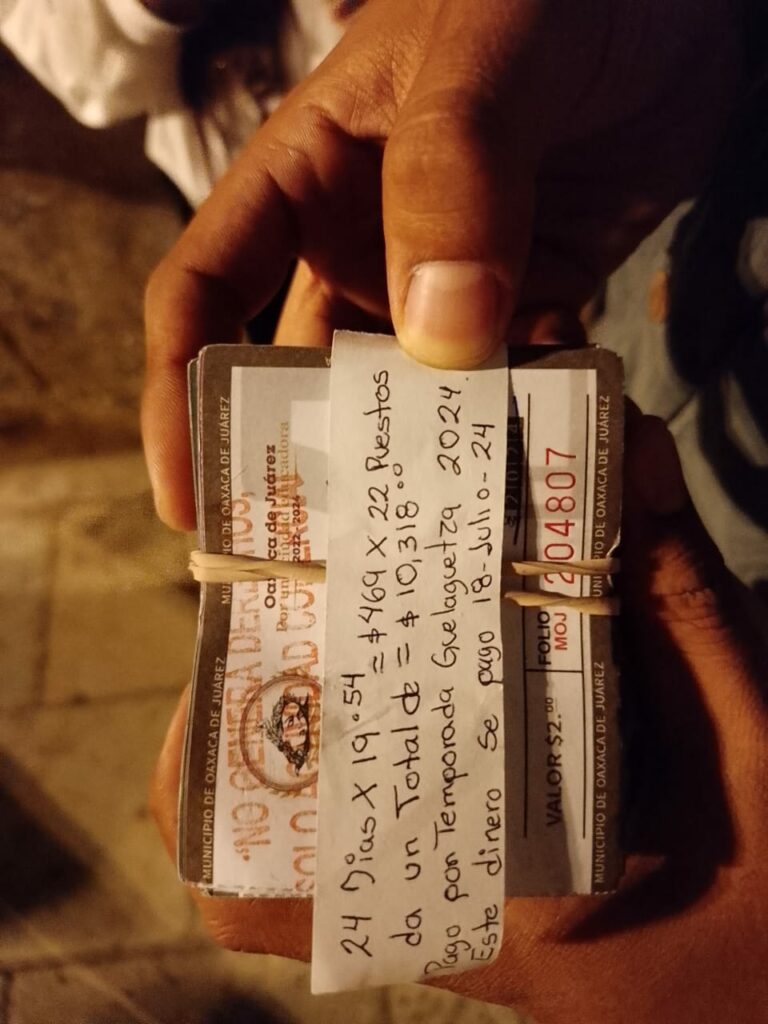 24 Días X 19.54 = $469 X 22 Puestos
da un Total de = $ 10,318.00
Pago por Temporada Guelaguetza 2024.
Este dinero se pago 18-Julio-24
MUNICIPIO DE OAXACA DE JUÁREZ
MUNICIPIO DE OAXACA DE JUÁREZ
"NO GENERA
SOLO
Oaxaca de Juárez
2022 - 2024
VALOR $2.00
FOLIO
MOJ 204807
MUNICIPIO DE OAXACA DE JUÁREZ
MUNICIPIO DE OAXACA DE JUÁREZ